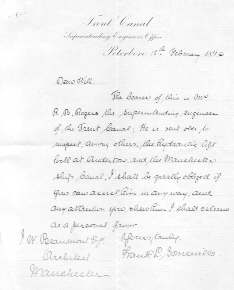 Trent Canal
Superintending Engineer's Office
Peterboro' 12th February 1896
Dear Will.
The bearer of this is Mr
R. B. Rogers the Superintending Engineer
of the Trent Canal. He is sent over to
inspect, among others, the hydraulic lift
lock at Anderton and the Manchester
Ship Canal, I shall be greatly obliged if
you can assist him in any way, and
any attention you show him I shall esteem
as a personal favor.
J. W. Beaumont Esq
Architect
Manchester
Yours truly,
Frank